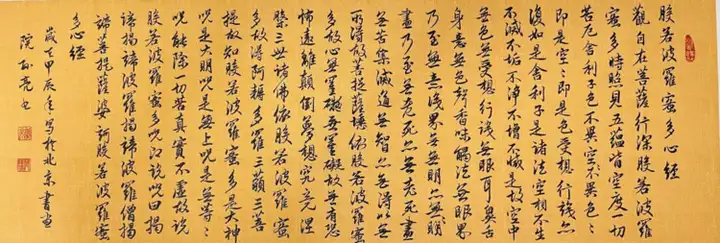 般若波羅蜜多心經
觀自在菩薩行深般若波羅
蜜多時照見五蘊皆空度一切
苦厄舍利子色不異空々不異色々
即是空々即是色受想行識亦
復如是舍利子是諸法空相不生
不滅不垢不淨不增不減是故空中
無色無受想行識無眼耳鼻舌
身意無色聲香味觸法無眼界
乃至無意識界無無明亦無無明
盡乃至無老死亦無老死盡
無苦集滅道無智亦無得以無
所得故菩提薩埵依般若波羅蜜
多故心無罣礙無罣礙故無有恐
怖遠離顛倒夢想究竟涅
槃三世諸佛依般若波羅蜜
多故得阿耨多羅三藐三菩
提故知般若波羅蜜多是大神
咒是大明咒是無上咒是無等々
咒能除一切苦真實不虛故說
般若波羅蜜多咒即說咒曰揭
諦揭諦波羅揭諦波羅僧揭
諦菩提薩婆訶般若波羅蜜
多心經
歲在甲辰年寫於北京書畫
院孙亮书